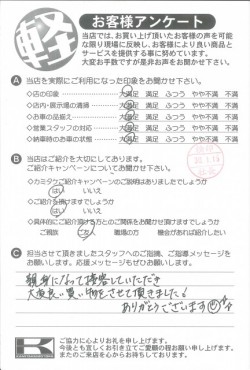 軽
お客様アンケート
当店では、お買い上げ頂いたお客様の声を可能
な限り現場に反映し、お客様により良い商品と
サービスを提供する事に努めています。
大変お手数ですが是非お声をお聞かせ下さい。
A 当店を実際にご利用になった印象をお聞かせ下さい。
◇店の印象 大満足 満足 ふつう やや不満 不満
◇店内・展示場の清掃 大満足 満足 ふつう やや不満 不満
◇お車の品揃え 大満足 満足 ふつう やや不満 不満
◇営業スタッフの対応 大満足 満足 ふつう やや不満 不満
◇納車時のお車の状態 大満足 満足 ふつう やや不満 不満
B 当店では、ご紹介を大切にしております。
ご紹介キャンペーンについてお聞かせ下さい。
◇カミタケご紹介キャンペーンのご説明はありましたでしょうか
はい いいえ
◇ご紹介を頂けますでしょうか
はい いいえ
ご親族 ご友人 職場の方 機会があれば紹介したい
C 担当させて頂きましたスタッフへのご指摘、ご指導メッセージを
お願いします。応援メッセージもぜひお願いします。
親身になって接客していただき
大変良い買い物をさせて頂きました!
ありがとうございます
K
ご協力に心よりお礼を申し上げます。
今後とも宜しくお引き立てご愛顧の程お願い申し上げます。
またのご来店を心からお待ちしております。